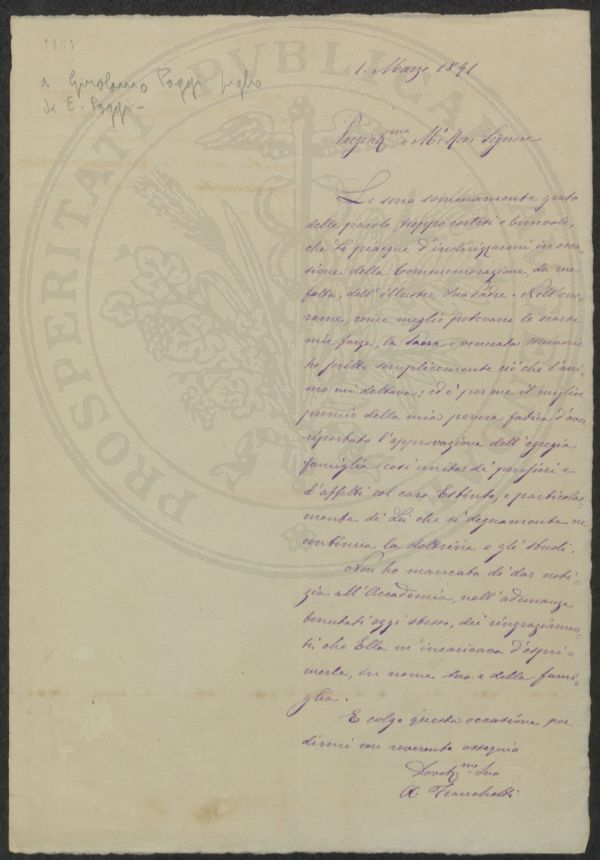 1184
a Girolamo Poggi figlio
di E. Poggi -
PROSPERITATI PUBLICAE
1. Marzo 1891
Pregiat.mo e Mio Signore
Le sono sommamente grato
delle parole, troppo cortesi e benevole,
che Le piacque d'indirizzarmi in occa=
sione della Commemorazione, da me
fatta, dell'illustre Suo Padre. Nell'ono=
rarne, come meglio potevano le scarse
mie forze, la sacra e venerata memoria
ho semplicemente ciò che l'ani=
mo mi dettava; ed è per me il miglior
premio della mia povera fatica d'aver
riportato l'approvazione dell'egregia
famiglia così unita di pensieri e
d'affetti col caro Estinto, e particolar=
mente di Lei che sì degnamente ne
continua la dottrina e gli studi.
Non ho mancato di dar noti=
zia all'Accademia, nell'adunanza
tenutasi oggi stesso, dei ringraziamen=
ti che Ella m'incaricava d'espri=
merle, in nome Suo e della fami=
glia.
E colgo questa occasione per
dirmi con reverente ossequio
Devot.mo Suo
A. Franchetti